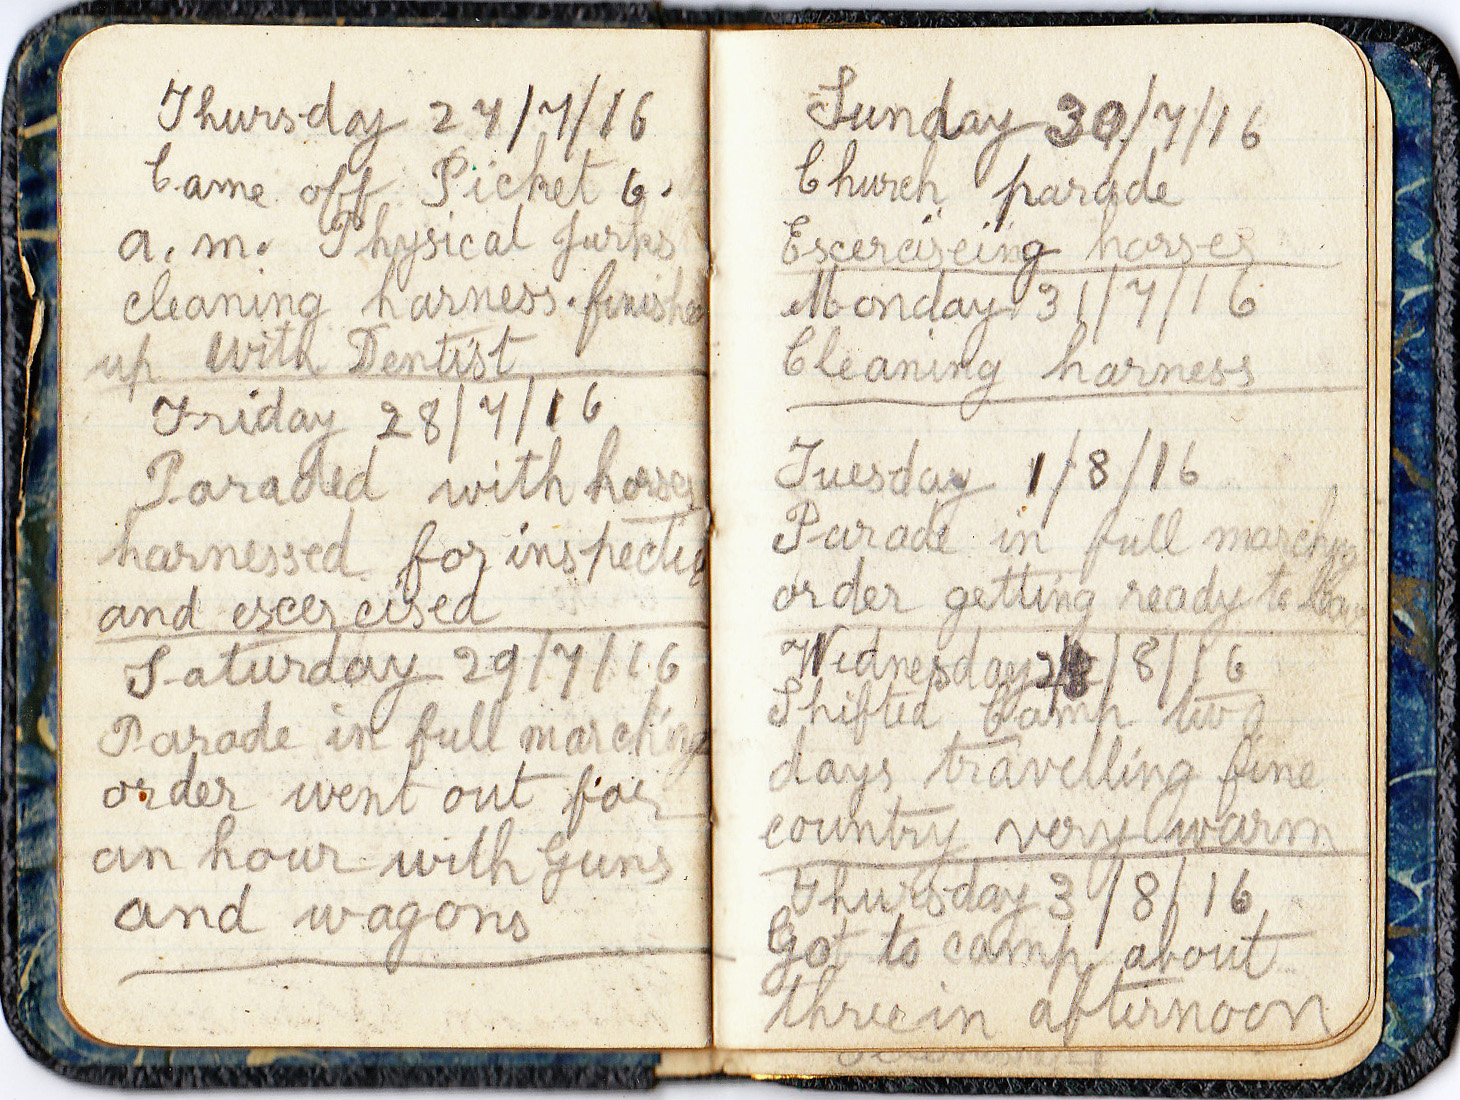 Thursday 27/7/16
Came off Picket 6.
a.m. Physical Jurks
cleaning harness. finished
up with Dentist
Friday 28/7/16
Paraded with horses
harnessed for inspectio
and escercised
Saturday 29/7/16
Parade in full marching
order went out for
an hour with Guns
and wagons
Sunday 30/7/16
Church parade
Escerciseing horses
Monday 31/7/16
Cleaning harness
Tuesday 1/8/16
Parade in full marchyn
order getting ready to leav
Wednesday 2/8/16
Shifted Camp two
days travelling fine
country very warm
Thursday 3/8/16
Got to camp about
three in afternoon